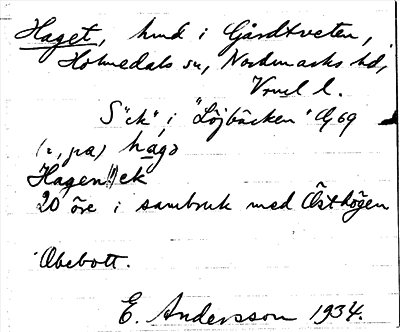 Haget, hmd i Gårdtveten,
Holmedals sn, Nordmarks hd,
Vrml l.
S "ck" i "Löjbäcken" Cg 69
(i, på) hagə
Hagen ek
20 öre i sambruk med Östhögen
Obebott.
E. Andersson 1934.